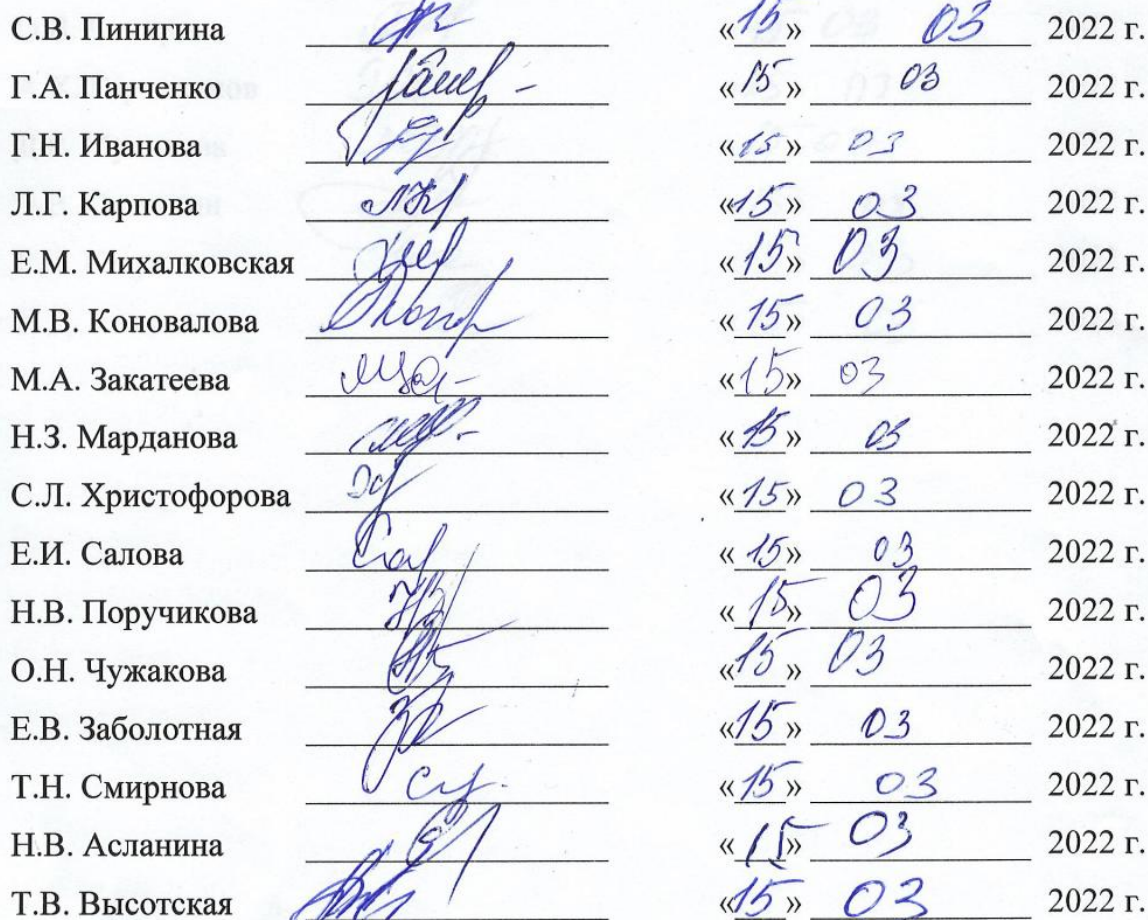 С.В. Пинигина «15» 03 2022 г.
Г.А. Панченко «15» 03 2022 г.
Г.Н. Иванова «15» 03 2022 г.
Л.Г. Карпова «15» 03 2022 г.
Е.М. Михалковская «15» 03 2022 г.
М.В. Коновалова «15» 03 2022 г.
М.А. Закатеева «15» 03 2022 г.
Н.З. Марданова «15» 03 2022 г.
С.Л. Христофорова «15» 03 2022 г.
Е.И. Салова «15» 03 2022 г.
Н.В. Поручикова «15» 03 2022 г.
О.Н. Чужакова «15» 03 2022 г.
Е.В. Заболотная «15» 03 2022 г.
Т.Н. Смирнова «15» 03 2022 г.
Н.В. Асланина «15» 03 2022 г.
Т.В. Высотская «15» 03 2022 г.